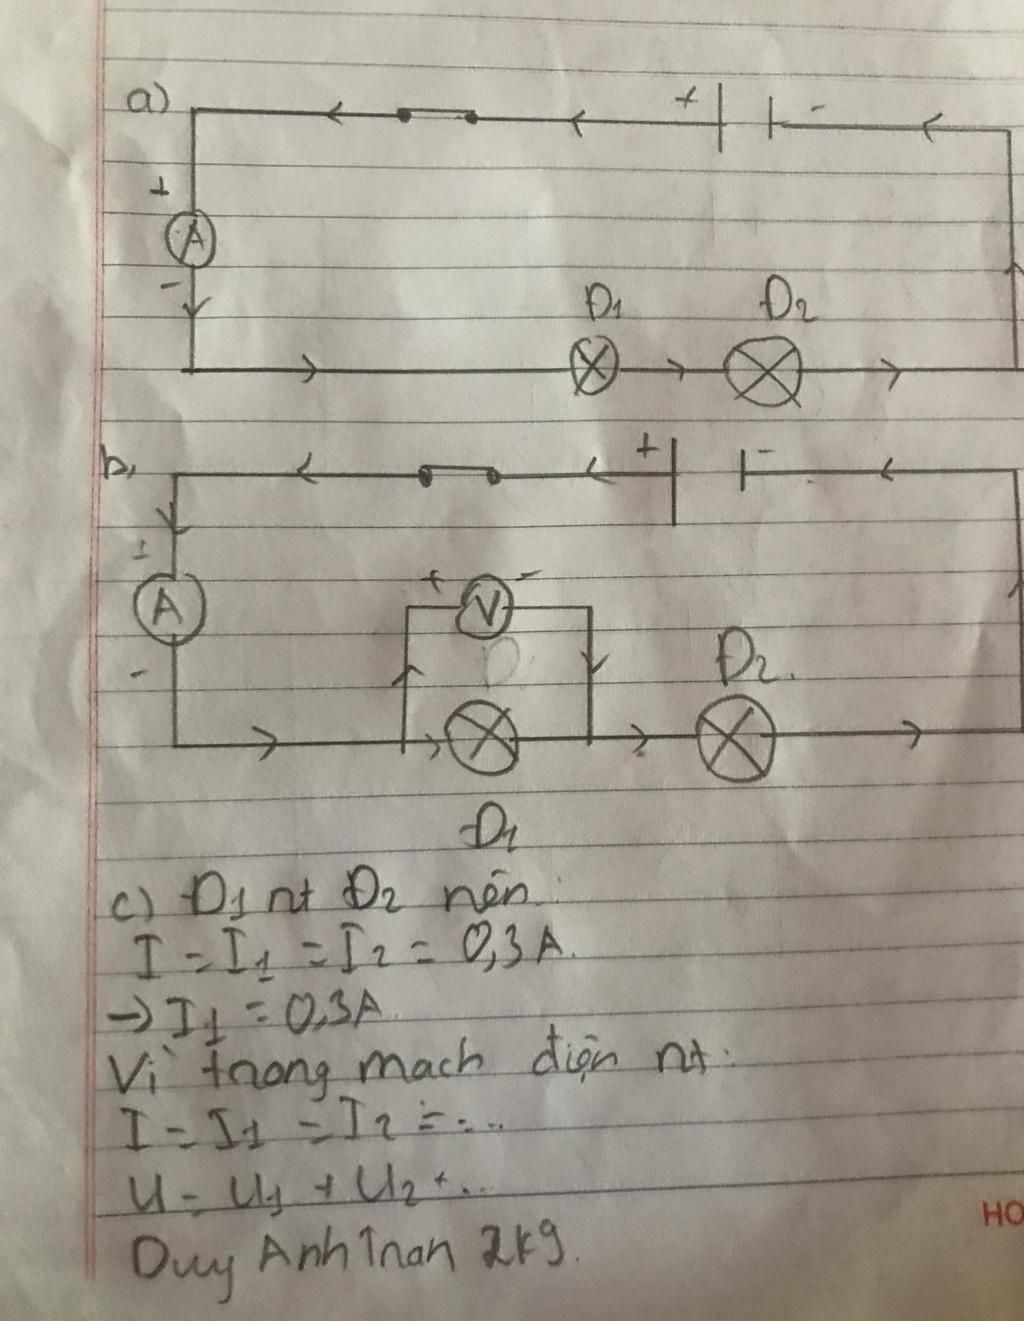 a)
+ -
+
A
-
Đ1 Đ2
b,
+ -
±
A
+ V -
Đ
Đ2.
-
Đ1
c) Đ1 nt Đ2 nên:
I = I1 = I2 = 0,3A.
→ I1 = 0,3A
Vì trong mach điện nt:
I = I1 = I2 = ...
U = U1 + U2 + ...
HO
Duy Anh Tran 2k9.